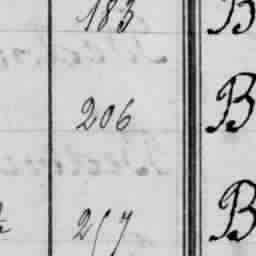 183 B
206 B
257 B